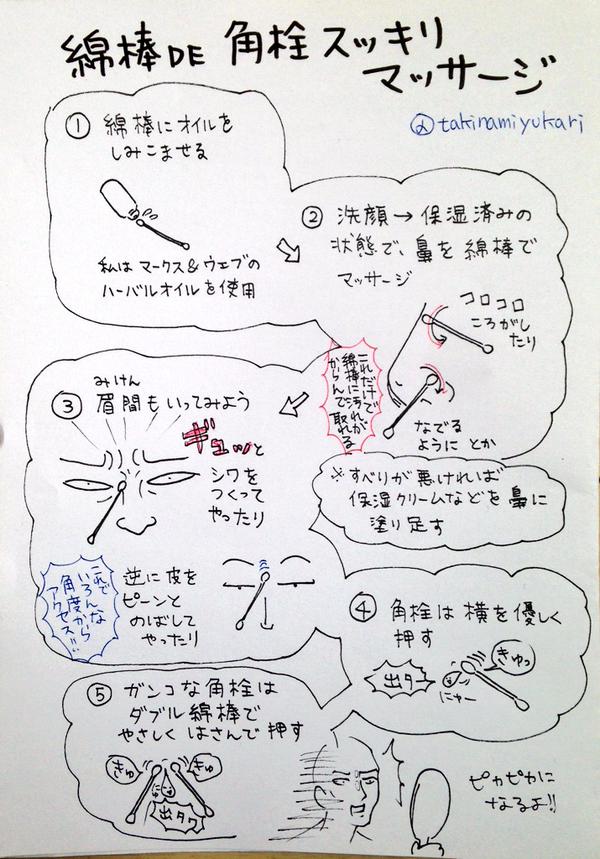 綿棒DE 角栓スッキリ
マッサージ
@takinamiyukari
① 綿棒にオイルを
しみこませる
私はマークス&ウェブの
ハーバルオイルを使用
② 洗顔→保湿済みの
状態で、鼻を綿棒で
マッサージ
コロコロ
ころがし
たり
なでる
ようにとか
これだけで
綿棒に汚れが
からんで取れる
※すべりが悪ければ
保湿クリームなどを鼻に
塗り足す
みけん
③ 眉間もいってみよう
ギュッと
シワを
つくって
やったり
逆に皮を
ピーンと
のばして
やったり
これで
いろんな
角度から
アクセス!!
④ 角栓は横を優しく
押す
きゅっ
出タァ
にゅー
⑤ ガンコな角栓は
ダブル綿棒で
やさしくはさんで押す
きゅ
きゅ
出タァ
ピカピカに
なるよ!!